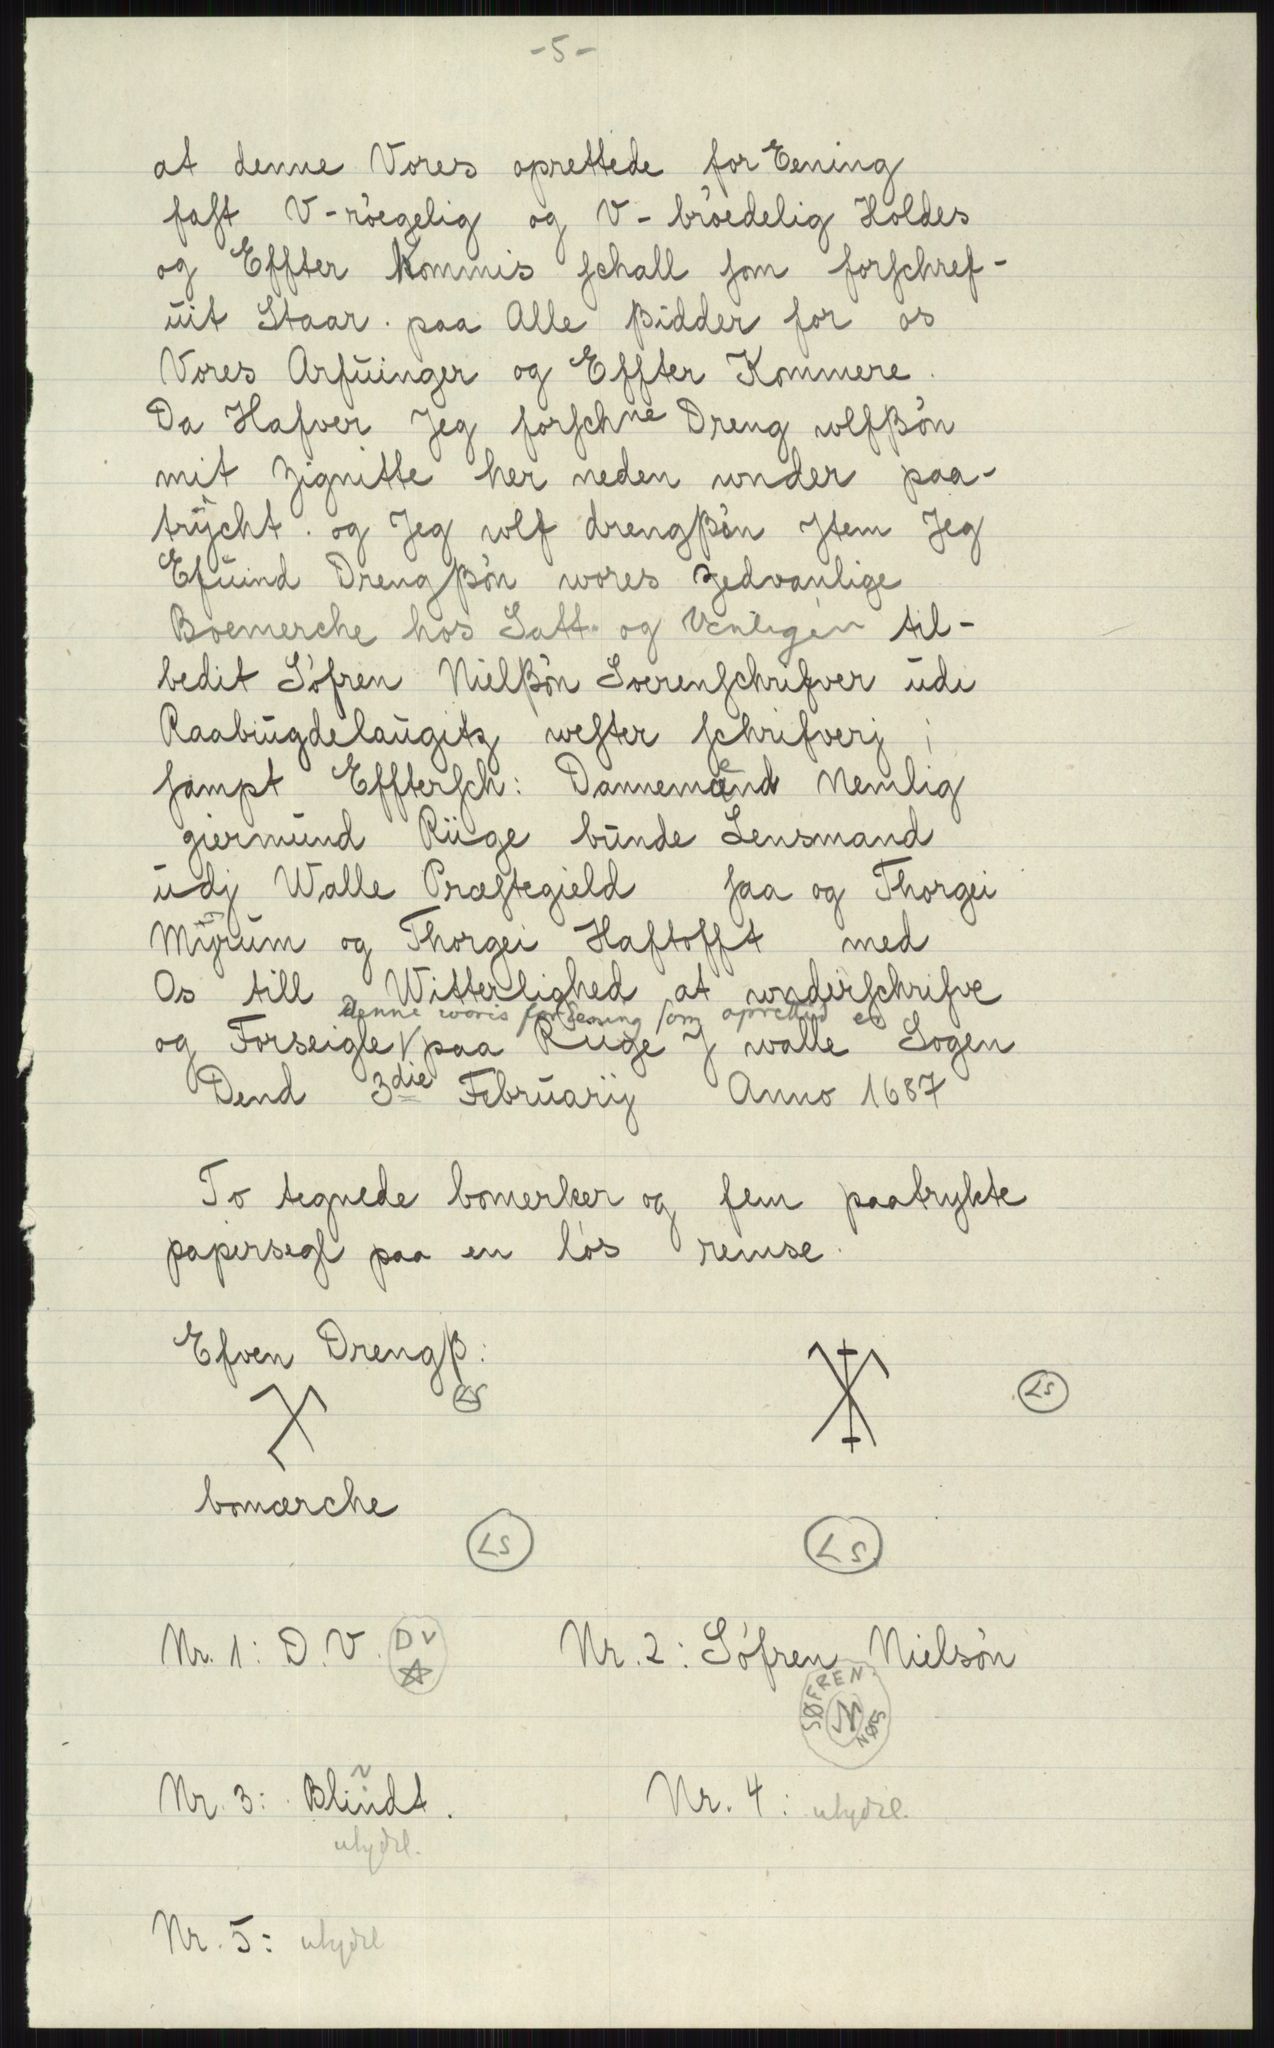 -5-
at denne Vores oprettede for Eening
fast V-röegelig og V-bröedelig Holdes
og Effter Kommis schall som forschref-
üit Staar. paa Alle ßidder for os
Vores Arfüinger og Effter Kommere.
Da Hafver Jeg forschne Dreng wlfßön
mit Zignitte her neden wnder paa-
trÿcht. og Jeg wlf drengßön Jtem Jeg
Efüind Drengßön wores zedvanlige
Boemerche hos Satt. og Venligen til-
bedit Söfren Nielßön Sorenschrifver üdi
Raabügdelaugitz wester schrifverj i
sampt Efftersch: Dannemænd Nemlig
giermünd Rüge bünde Lensmand
üdj Walle Præstegield saa og Thorgei
Mÿrüm og Thorgei Haftofft med
Os till Witterlighed at wnderschrifve
denne woris forEening som oprettid er
og Forseigle √ paa Rüge J walle Sogen
Dend 3die Februarij Anno 1687
To tegnede bomerker og fem paatrykte
papirsegl paa en lös remse.
Efven Drengß:
LS
LS
bomærche
LS
LS
Nr. 1: D.V. DV
Nr. 2: Söfren Nielsön
SØFREN N NØLS
Nr. 3: Blindt.
utydel.
Nr. 4: utydel.
Nr. 5: utydel